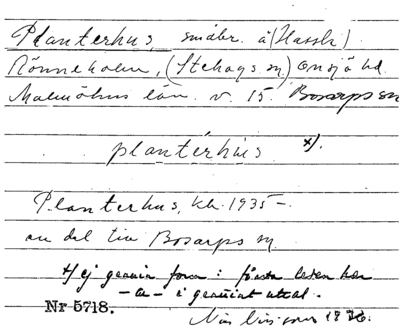 Planterhus, småbr. å (Hassle)
Rönneholm, (Stehags sn) Onsjö hd
Malmöhus län. v. 15. Bosarps sn
plantérhùs x).
Planterhus, kk. 1935 –
nu del till Bosarps sn
x/ ej genuin form : första leden har
– a – i genuint uttal.
Nr 5718.
Nils